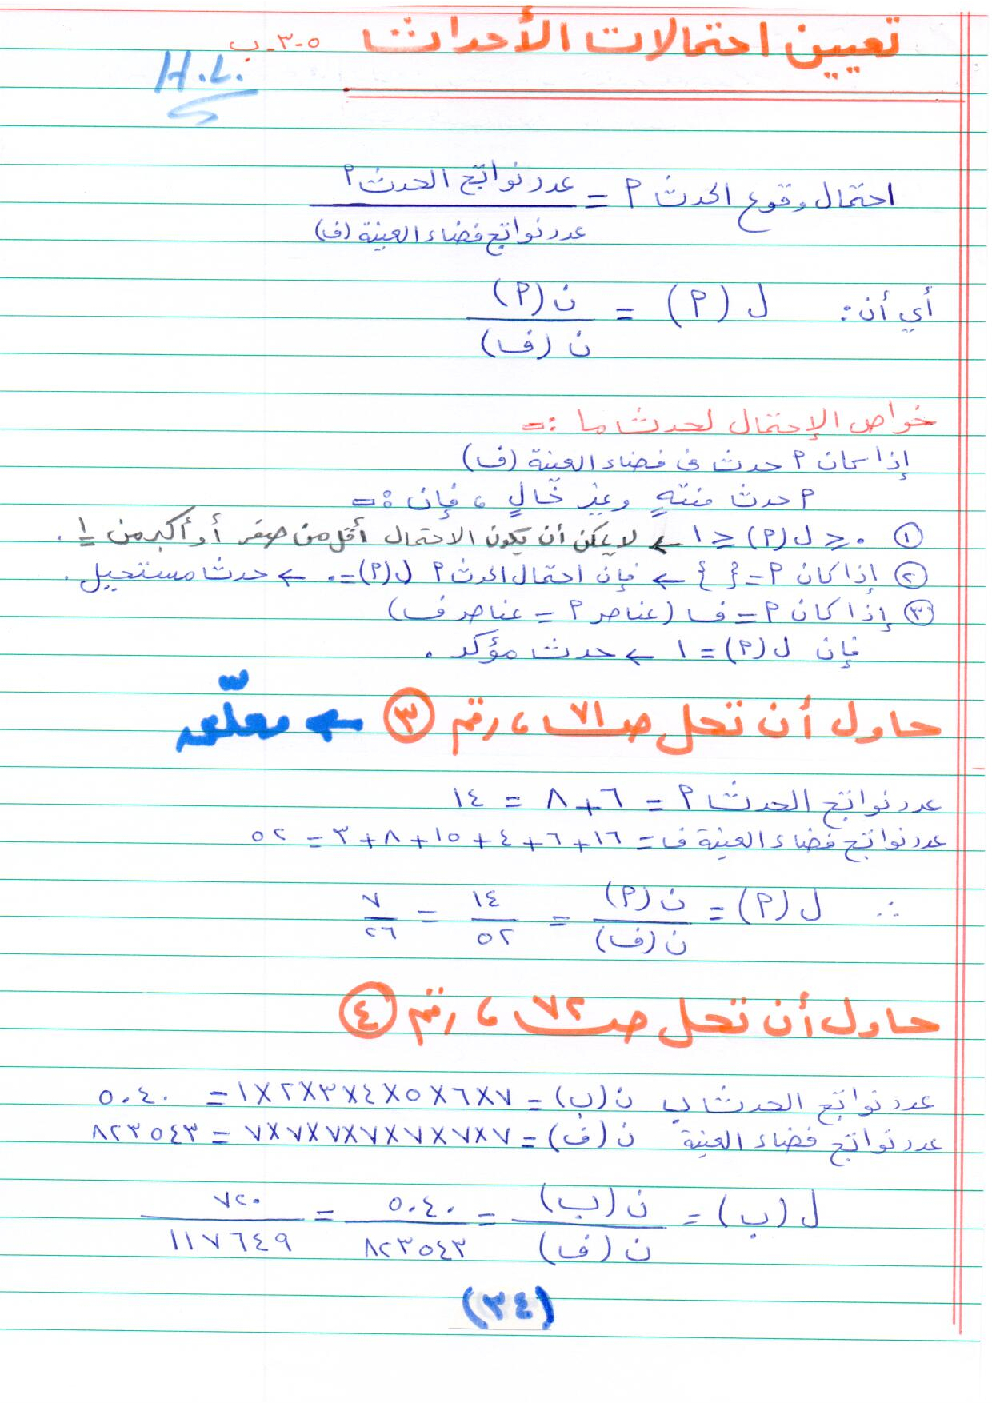 تعيين احتمالات الأحداث ٥-٣-ب
H.L.
احتمال وقوع الحدث م = عدد نواتج الحدث م
عدد نواتج فضاء العينة (ف)
أي أن: ل (م) = ن (م)
ن (ف)
خواص الإحتمال لحدث ما :=
إذا كان م حدث في فضاء العينة (ف)
م حدث منتهٍ وغير خالٍ ، فإن :=
① ٠ ≤ ل (م) ≤ ١ ← لا يمكن أن يكون الاحتمال أقل من صفر أو أكبر من ١ .
② إذا كان م = { } ← فإن احتمال الحدث م ل (م) = ٠ ← حدث مستحيل .
③ إذا كان م = ف (عناصر م = عناصر ف)
فإن ل (م) = ١ ← حدث مؤكد .
حاول أن تحل صـ ٧١ ، رقم ③ ← معلّق
عدد نواتج الحدث م = ٦ + ٨ = ١٤
عدد نواتج فضاء العينة ف = ١٦ + ٦ + ٤ + ١٥ + ٨ + ٣ = ٥٢
∴ ل (م) = ن (م) = ١٤ = ٧
ن (ف) ٥٢ ٢٦
حاول أن تحل صـ ٧٢ ، رقم ④
عدد نواتج الحدث ب ن (ب) = ٧×٦×٥×٤×٣×٢×١ = ٥٠٤٠
عدد نواتج فضاء العينة ن (ف) = ٧×٧×٧×٧×٧×٧×٧ = ٨٢٣٥٤٣
ل (ب) = ن (ب) = ٥٠٤٠ = ٧٢٠
ن (ف) ٨٢٣٥٤٣ ١١٧٦٤٩
(٣٤)